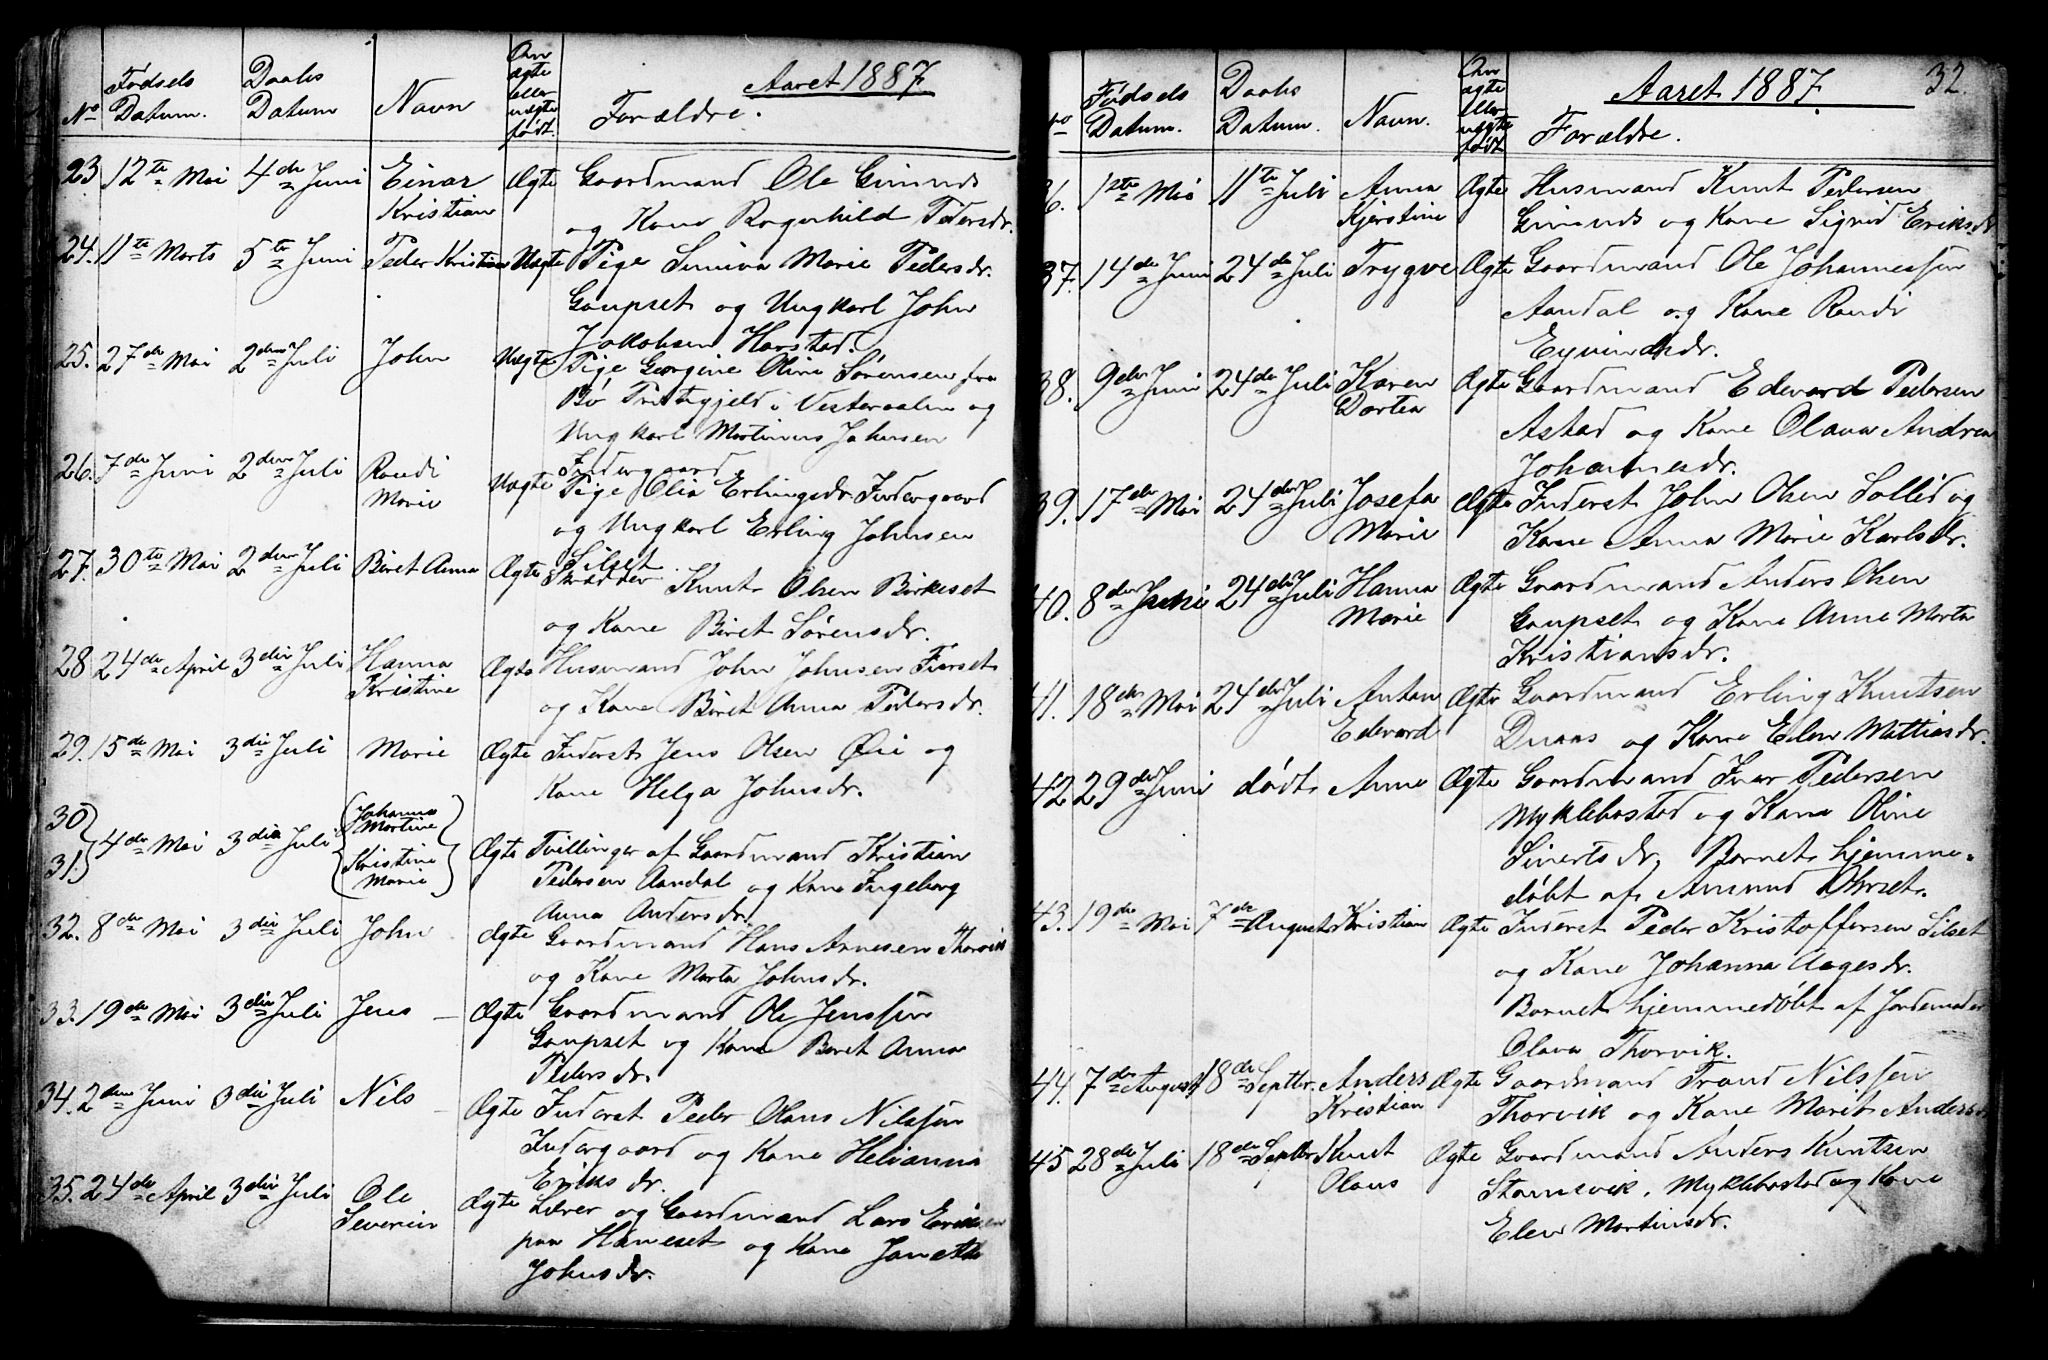 Aaret 1887
No
Fødsels Datum.
Daabs Datum
Navn
Om ægte eller uægte født.
Forældre.
23 12te Mai 4de Juni Einar Ægte Gaardmand Ole Gimnes
Kristian og Kone Ragnhild Pedersdr.
24. 11te Marts 5te Juni Peder Kristian Uægte Pige Siniva Marie Pedersdr.
Gaupset og Ungkarl John
Jakobsen Harstad.
25. 27de Mai 2den Juli John Uægte Pige Georgine Oline Sørensen fra
Bø Præstegjeld i Vesteraalen og
Ungkarl Martinus Johnsen
Indergaard
26. 7de Juni 2den Juli Randi Uægte Pige Olia Erlingsdr. Indergaard
Marie og Ungkarl Erling Johnsen
Silset.
27. 30te Mai 2den Juli Beret Anna Ægte Skrædder Knut Olsen Birkeset
og Kone Beret Sørensdr.
28 24de April 3die Juli Hanna Ægte Husmand John Johnsen Furset
Kristine og Kone Beret Anna Pedersdr.
29. 15de Mai 3die Juli Marie Ægte Inderst Jens Olsen Øie og
Kone Helga Johnsdr.
30 Johanna
Martine
31. 4de Mai 3die Juli Kristine Marie Ægte Tvillinger af Gaardmand Kristian
Pedersen Aandal og Kone Ingeborg
Anna Andersdr.
32. 8de Mai 3die Juli John Ægte Gaardmand Hans Arnesen Thorvik
og Kone Marta Johnsdr.
33. 19de Mai 3die Juli Jens Ægte Gaardmand Ole Jenssen
Gaupset og Kone Beret Anna
Pedersdr.
34. 2den Juni 3die Juli Nils Ægte Inderst Peder Olaus Nilssen
Indergaard og Kone Helianna
Eriksdr.
35. 24de April 3die Juli Ole Ægte Lærer og Gaardmand Lars Eriksen
Severin paa Haneset og Kone Janetta
Johnsdr.
Aaret 1887
32.
No
Fødsels Datum.
Daabs Datum.
Navn.
Om ægte eller uægte født
Forældre.
36. 1ste Mai 11te Juli Anna Ægte Husmand Knut Pedersen
Kjerstine Gimnes og Kone Sigrid Eriksdr.
37. 14de Juni 24de Juli Trygve Ægte Gaardmand Ole Johannessen
Aandal og Kone Randi
Eyvindsdr.
38. 9de Juni 24de Juli Karen Ægte Gaardmand Edevard Pedersen
Dortea Astad og Kone Olava Andrea
Johannesdr.
39. 17de Mai 24de Juli Josefa Ægte Inderst John Olsen Sollid og
Marie Kone Anna Marie Karlsdr.
40. 8de Juni 24de Juli Hanna Ægte Gaardmand Anders Olsen
Marie Gaupset og Kone Anne Marta
Kristiansdr.
41. 18de Mai 24de Juli Anton Ægte Gaardmand Erling Knutsen
Edevard og Kone Elen Mattiasdr.
42 29de Juni dødt Anne Ægte Gaardmand Ivar Pedersen
Myklebostad og Kone Oline
Sivertsdr. Barnet hjemme-
døbt af Amund Ohrset.
43. 19de Mai 7de August Kristian Ægte Inderst Peder Kristoffersen Silset
og Kone Johanna Aagesdr.
Barnet hjemmedøbt af Jordemoder
Olava Thorvik.
44. 7de August 18de Septbr. Anders Ægte Gaardmand Trond Nilssen
Kristian Thorvik og Kone Marit Andersdr.
45 28de Juli 18de Septbr Knut Ægte Gaardmand Anders Knutsen
Olaus Storvik, Myklebostad og Kone
Elen Martinsdr.